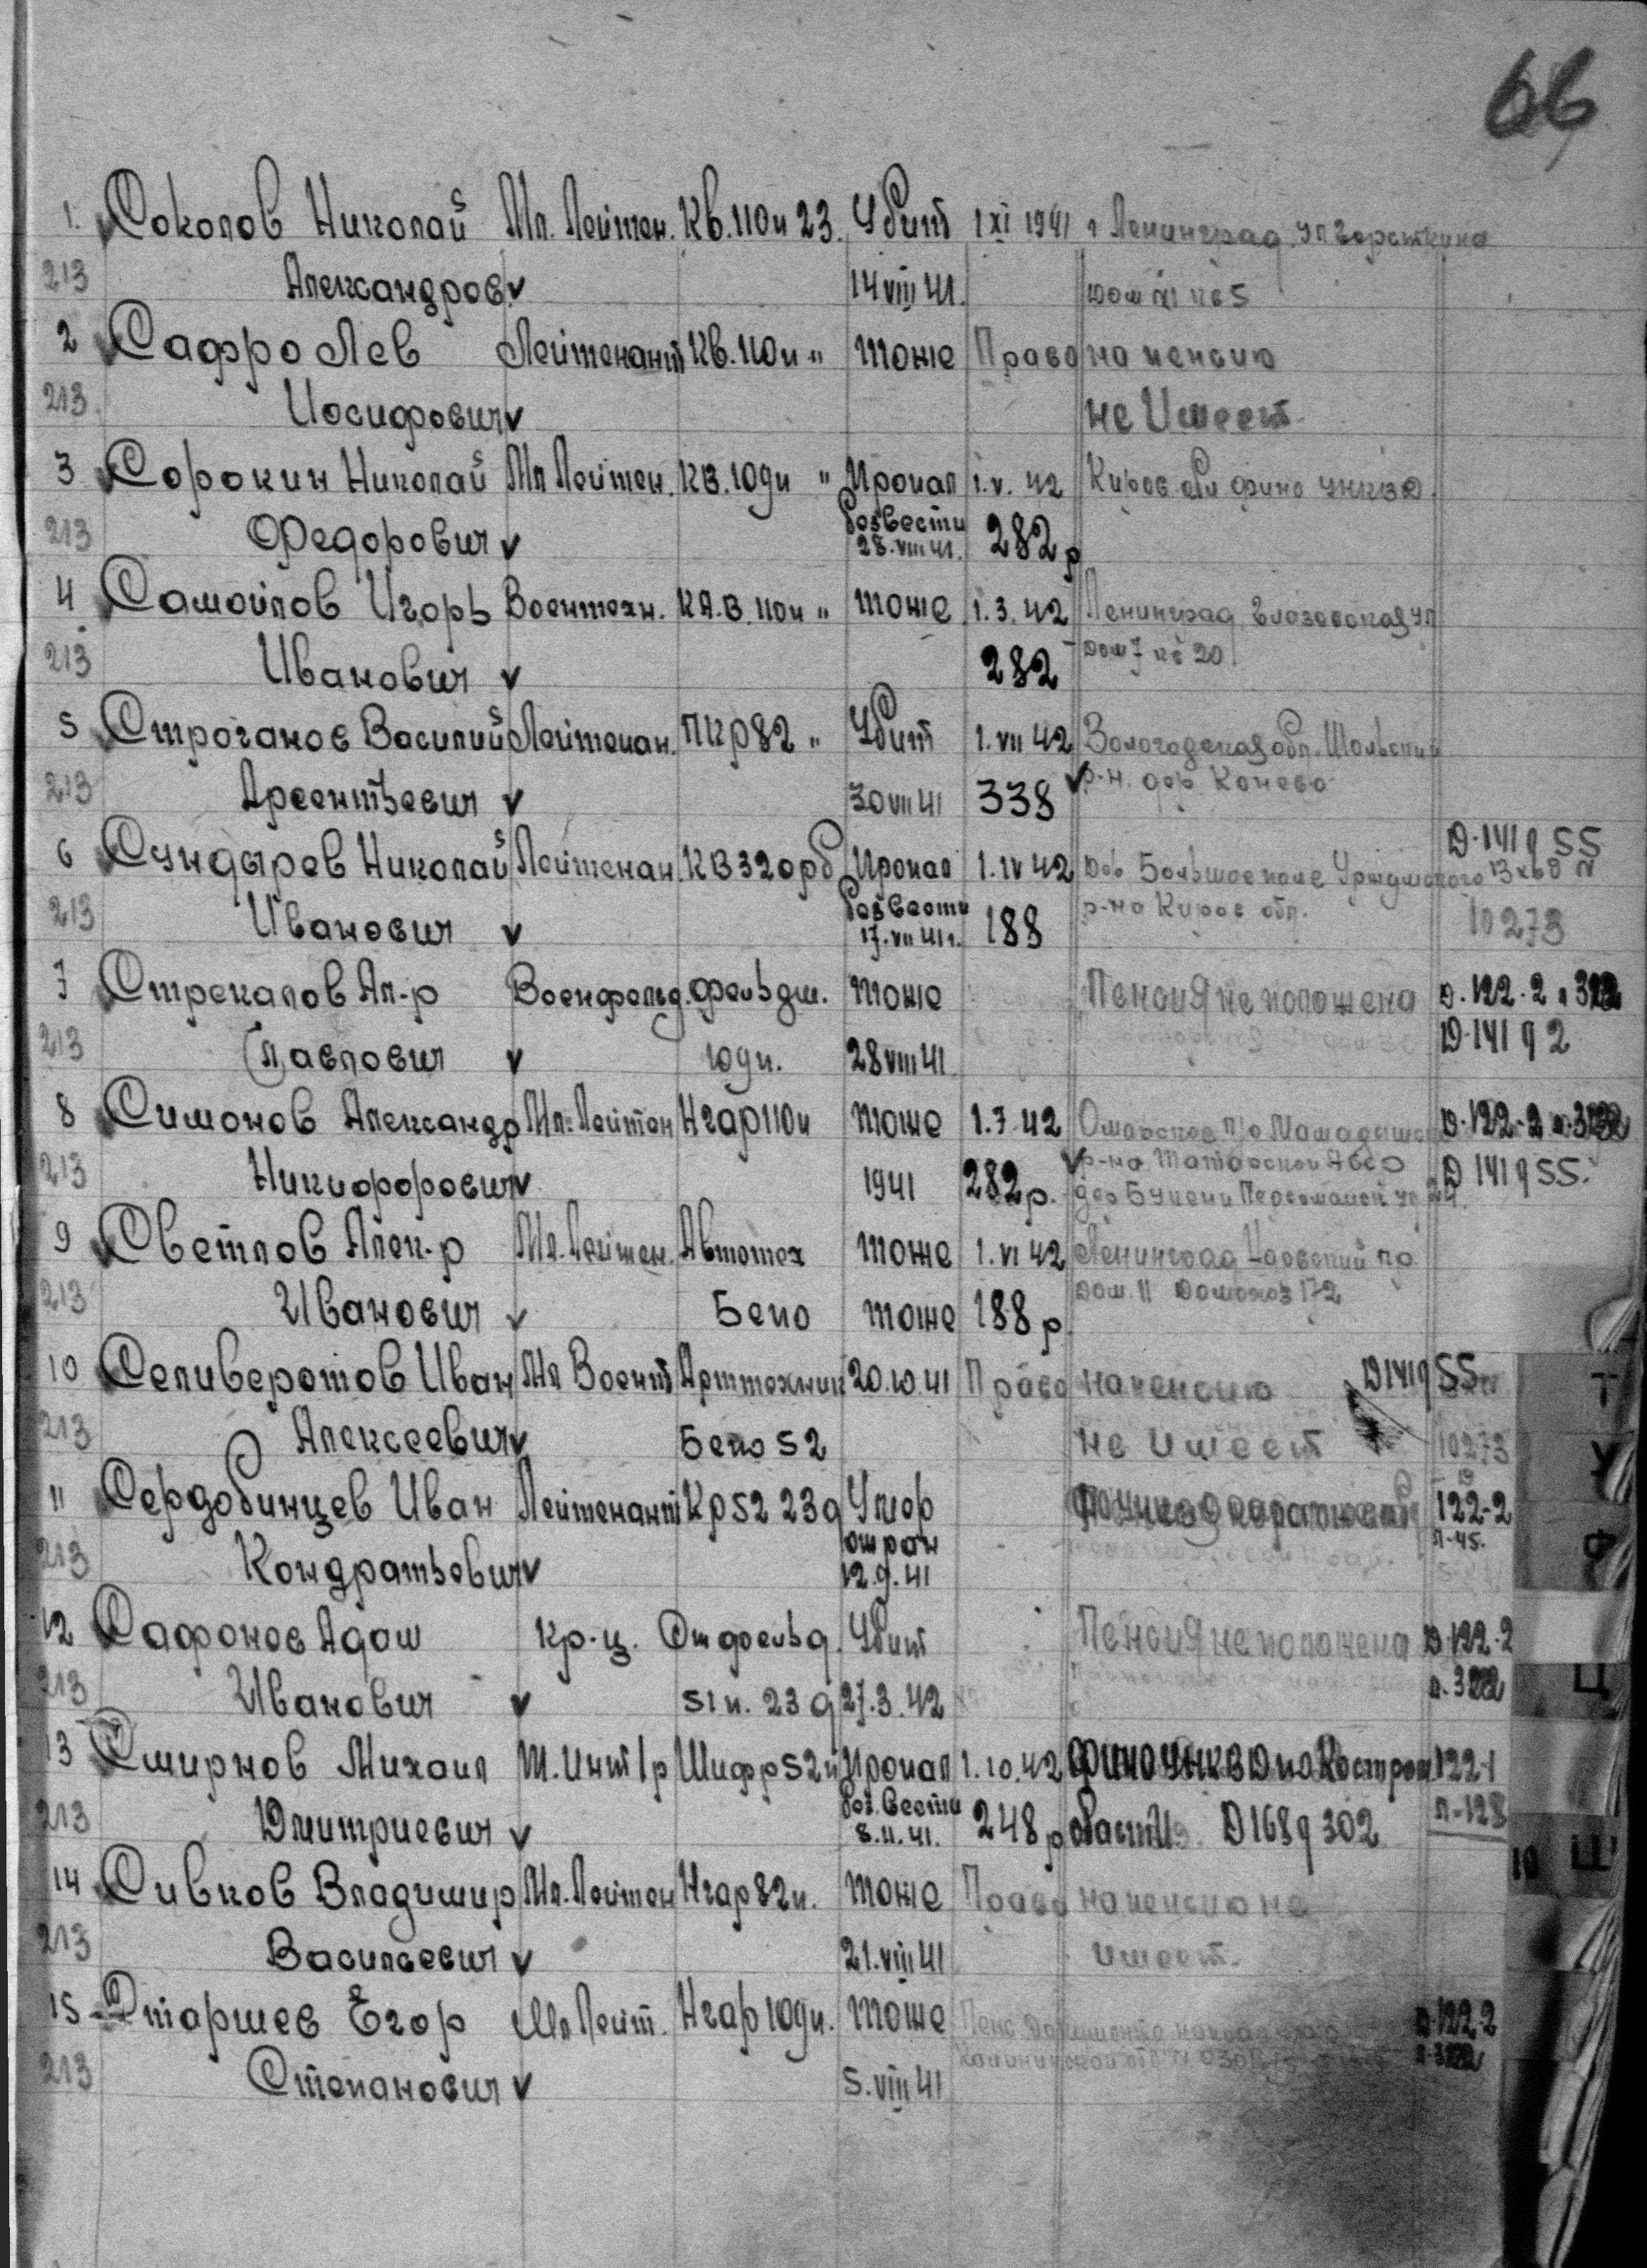 66
1. Соколов Николай Мл. Лейтен. Кв. 110п 23. Убит 1 XI 1941 г Ленинград, ул
213 Александров 14 VIII 41. дом кв 5
2 Сафро Лев Лейтенант Кв. 110п " тоже Право на пенсию
213 Иосифович не Имеет
3 Сорокин Николай Мл Лейтен. КВ. 10дп " Пропал 1. V. 42 Киров
213 Федорович безвести 28. VIII 41. 282 р
4 Самойлов Игорь Воентехн. К 110п " тоже 1. 3. 42 Ленинград, ул
213 Иванович 282 дом 7 кв 20
5 Строганов Василий Лейтенан. ПКР 82 " Убит 1. VII 42 Вологодская обл. Шольский
213 Арсентьевич 30 VII 41 338 р-н. дер Конево
6 Сундырев Николай Лейтенан. КВ 32 Пропал 1. IV 42 Большое поле D. 141 q 55
213 Иванович безвести 17. VII 41 г. 188 р-на Киров обл. 10273
7 Стрекалов Ал-р Военфельд. фельдш. тоже Пенсия не положена D. 122-2
213 Павлович 10дп. 28 VIII 41 D. 141 q 2
8 Симонов Александр Мл. Лейтен Нгар 110п тоже 1. 7 42 п/о D. 122-2
213 Никифорович 1941 282 р. р-на Татарской D 141 q 55.
дер
9 Светлов Алек-р Мл. Лейтен. Автотех тоже 1. VI 42 Ленинград
213 Иванович Бепо тоже 188 р. дом. 11 172
10 Селиверстов Иван Мл Воент Арттехник 20. 10 41 Право на пенсию D 141 q 55
213 Алексеевич Бепо 52 не имеет 10273
11 Сердобинцев Иван Лейтенант Кр 52 23д Умер 122-2
213 Кондратьевич от ран 12. 9. 41 п-45.
12 Сафонов Адам кр-ц. Убит Пенсия не положена D. 122-2
213 Иванович 51п. 23 д 27. 3. 42
13 Смирнов Михаил Т. Инт 1р Шифр 52п Пропал 1. 10. 42 ФИНО УНКВД по Костром. 122-1
213 Дмитриевич без. вести 8. 11. 41. 248 р области. D 168 q 302 п-128
14 Сивков Владимир Мл. Лейтен Нгар 82п. тоже Право на пенсию не
213 Васильевич 21. VIII 41 имеет.
15 Старшев Егор Мл Лейт. Нгар 10дп. тоже Пенс D. 122-2
213 Степанович 5. VIII 41
Т
У
Ф
Ц
10 Ш